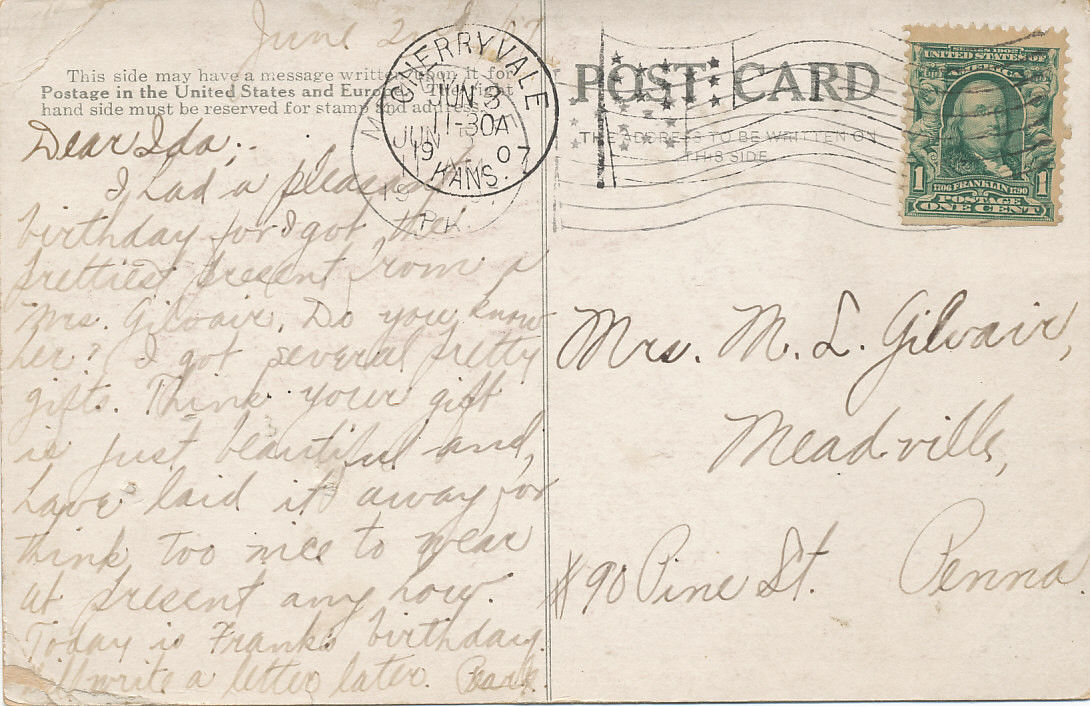 June 2nd 07
This side may have a message written upon it for
Postage in the United States and Europe. The right
hand side must be reserved for stamp and address.
CHERRYVALE
JUN 3
11-30A
1907
KANS.
JUN
19
Dear Ida,
I had a pleasant
birthday for I got the
prettiest present from a
Mrs. Gilvair. Do you know
her? I got several pretty
gifts. Think your gift
is just beautiful and,
have laid it away for
think too nice to wear
at present any how.
Today is Frank's birthday.
Will write a letter later. Pearl.
POST CARD
THE ADDRESS TO BE WRITTEN ON
THIS SIDE
SERIES 1902
UNITED STATES OF
AMERICA
1 1706 FRANKLIN 1790 1
POSTAGE
ONE CENT
Mrs. M. L. Gilvair,
Meadville,
#90 Pine St. Penna.